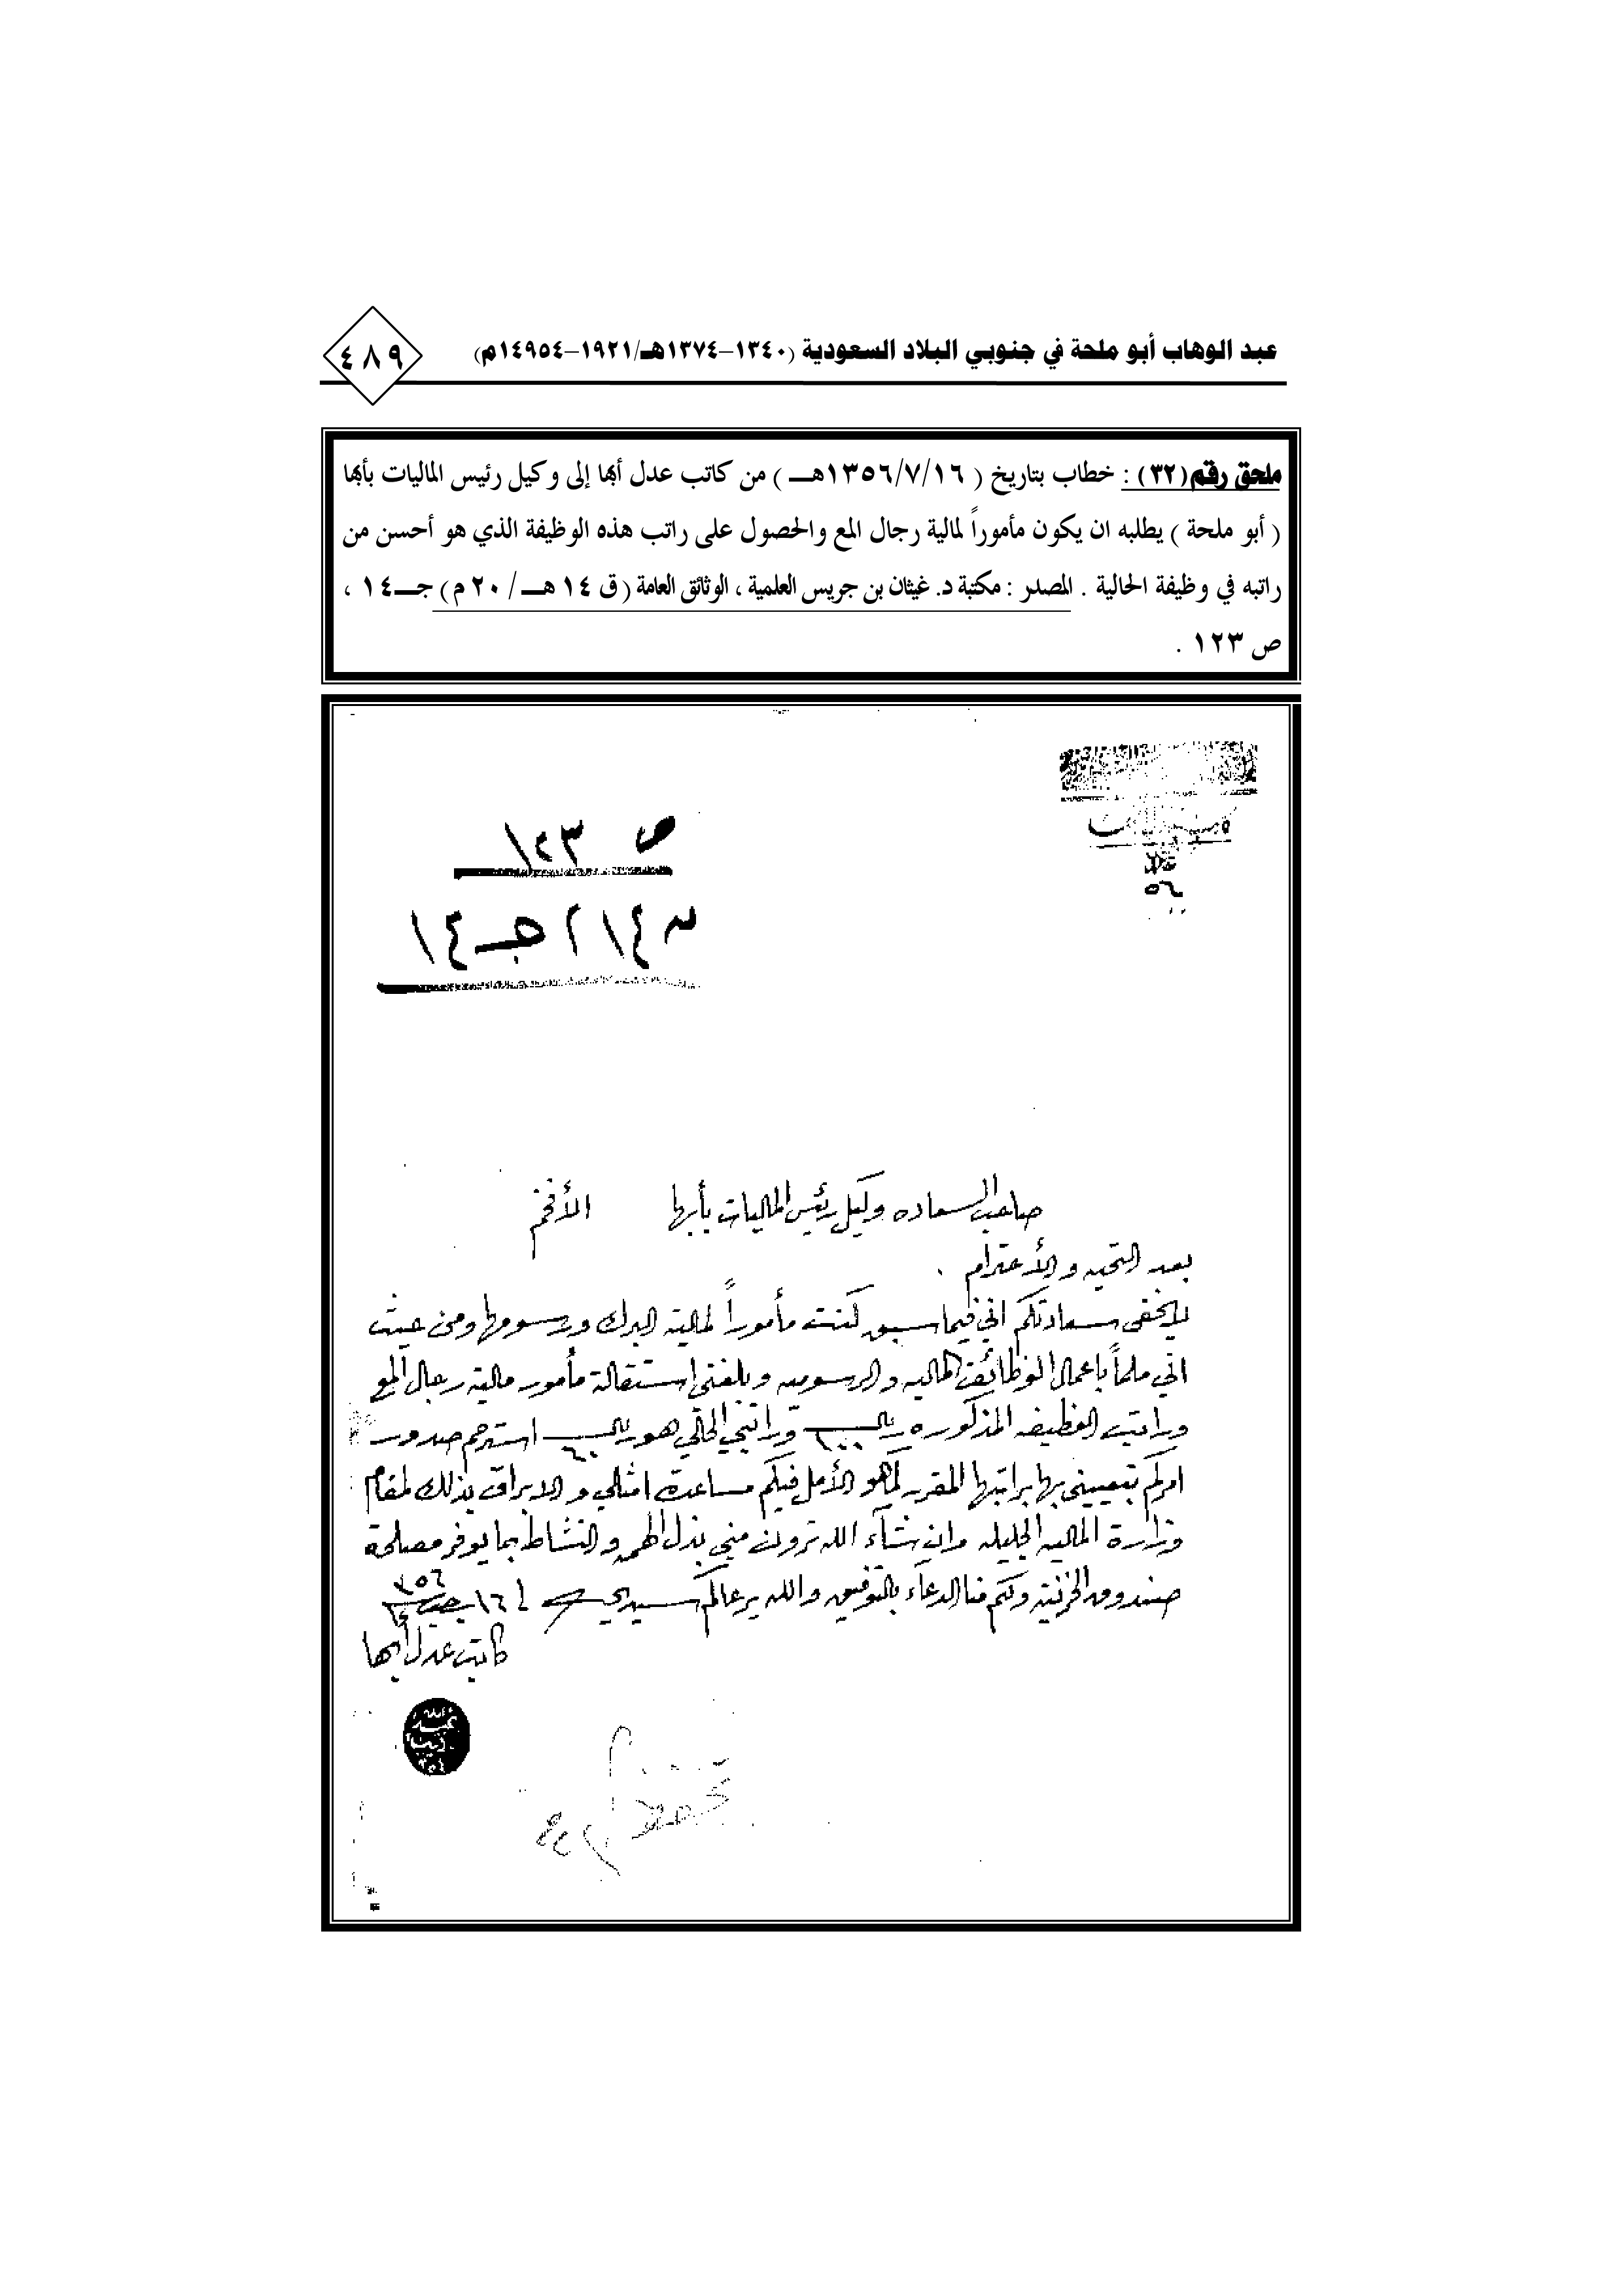 عبد الوهاب أبو ملحة في جنوبي البلاد السعودية (١٣٤٠–١٣٧٤هـ/١٩٢١–١٤٩٥٤م)
٤٨٩
ملحق رقم(٣٢) : خطاب بتاريخ ( ١٣٥٦/٧/١٦هــ ) من كاتب عدل أبها إلى وكيل رئيس الماليات بأبها
( أبو ملحة ) يطلبه ان يكون مأموراً لمالية رجال المع والحصول على راتب هذه الوظيفة الذي هو أحسن من
راتبه في وظيفة الحالية . المصدر : مكتبة د. غيثان بن جريس العلمية ، الوثائق العامة ( ق ١٤ هــ / ٢٠ م ) جــ ١٤ ،
ص ١٢٣ .
ص ١٢٣
جـ ١٤
صاحب السعاده وكيل رئيس الماليات بأبها الأفخم
بعد التحيه والأحترام .
لايخفى سعادتكم اني فيما سبق كنت مأموراً لمالية البرك ورسومها ومن حيث
اني ملماً باعمال الوظائف الماليه والرسوميه وبلغني استقالة مأمور مالية رجال المع
وراتب الوظيفه المذكوره ريال وراتبي الحالي هو ريال ٦٠ استرحم صدور
امركم بتعييني بها براتبها المقرر كما هو الأمل فيكم مساعدة امثالي والابراق بذلك لمقام
وزارة الماليه الجليله وان شآء الله ترون مني بذل الهمه والنشاط بما يوفر مصلحة
صندوق الخزينة ولكم منا الدعاء بالتوفيق والله يرعاكم سيدي في ١٦ رجب ٣٥٦
كاتب عدل أبها